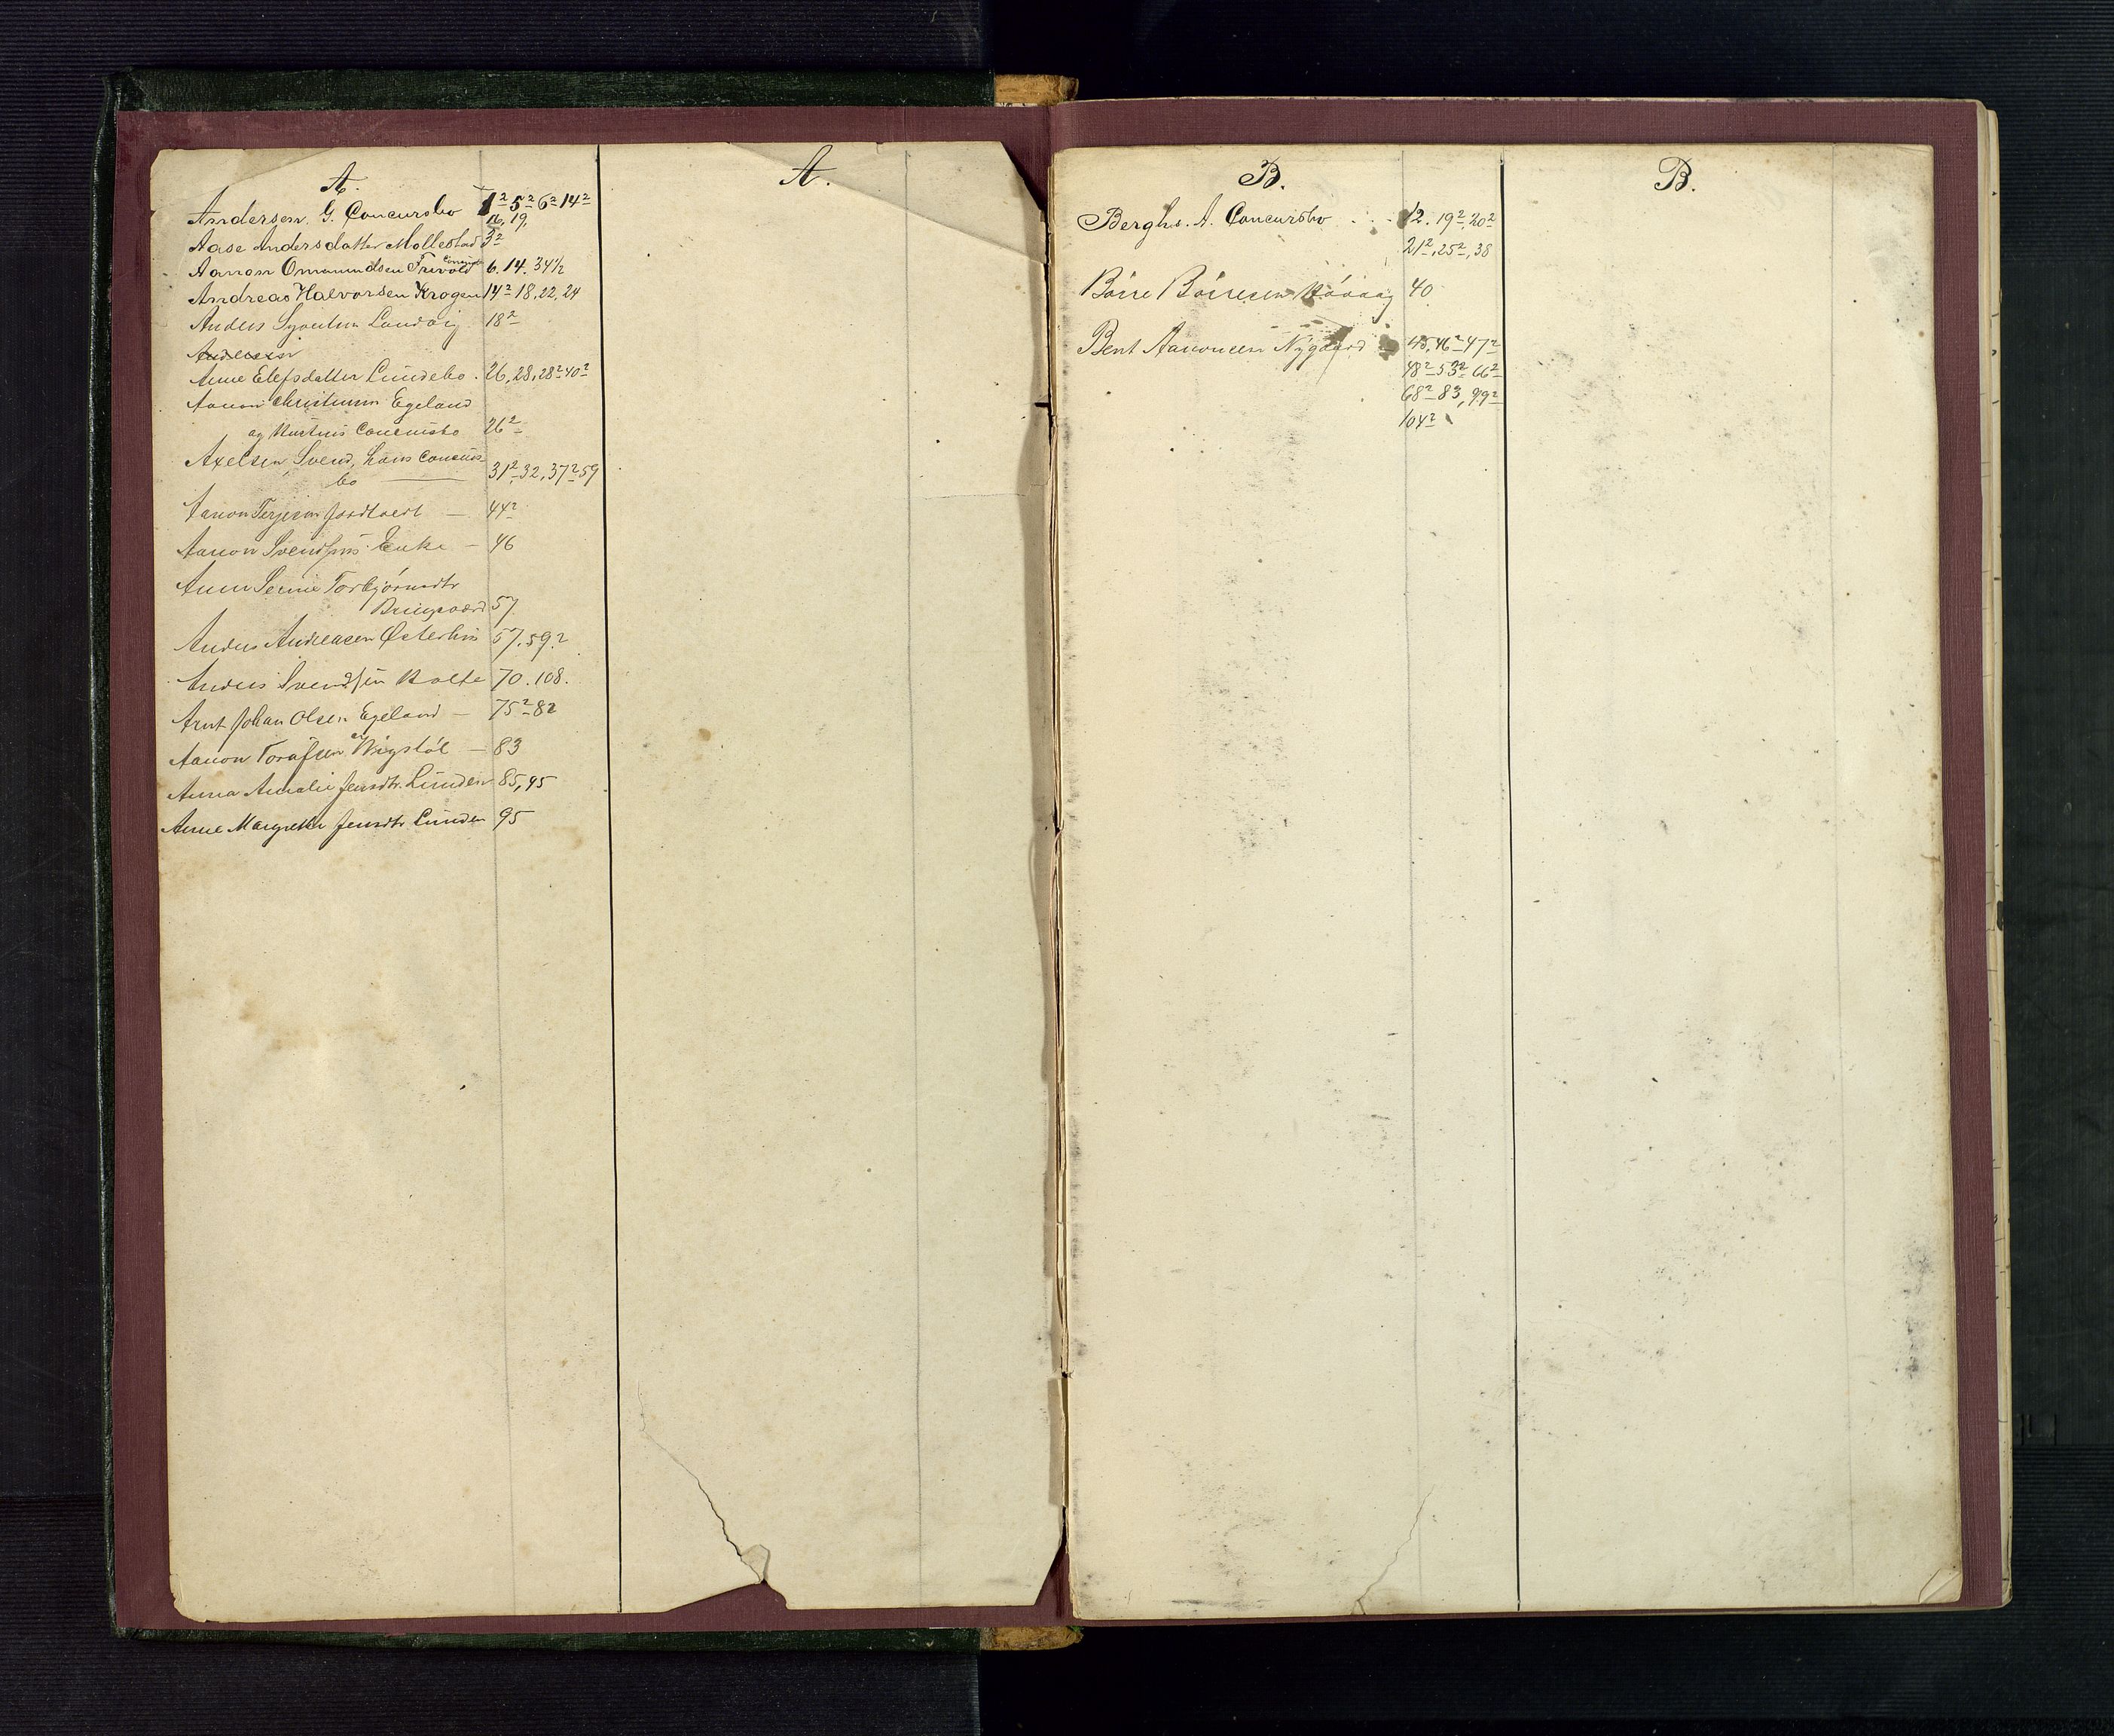 A.
Andersen. G. Concursbo 1² 5² 6² 14²
16, 19,
Aase Andersdatter Mollestad 3²
Aanon Omundsen Trevold 6. 14. 34½
Andreas Halvorsen Krogen 14² 18, 22, 24
Anders Landvig 18²
Andersen
Anne Elefsdatter Lundebo. 26, 28, 28² 40²
Aanon Christensen Egeland
og Hustrus Concursbo 26²
Axelsen, Svend, hans Concurs
bo 31², 32, 37² 59
Aanon Terjesen — 44²
Aanon Svendsens Enke — 46
Anne Serine Torbjørnsdtr
57
Anders Andreasen Østerhus 57. 59²
Anders Svendsen 70. 108.
Arnt Johan Olsen Egeland — 75² 82
Aanon Torafsen Vigstøl — 83
Anna Amalie Jensdtr. Lunden 85, 95
Anne Margrethe Jensdtr Lunden 95
A.
B.
Berghs. A. Concursbo 12. 19², 20²
21², 25², 38
Børre Børresen 40
Bent Aanonsen Nygaard 45, 46² 47²
48² 53² 66²
68² 83, 99²
104²
B.